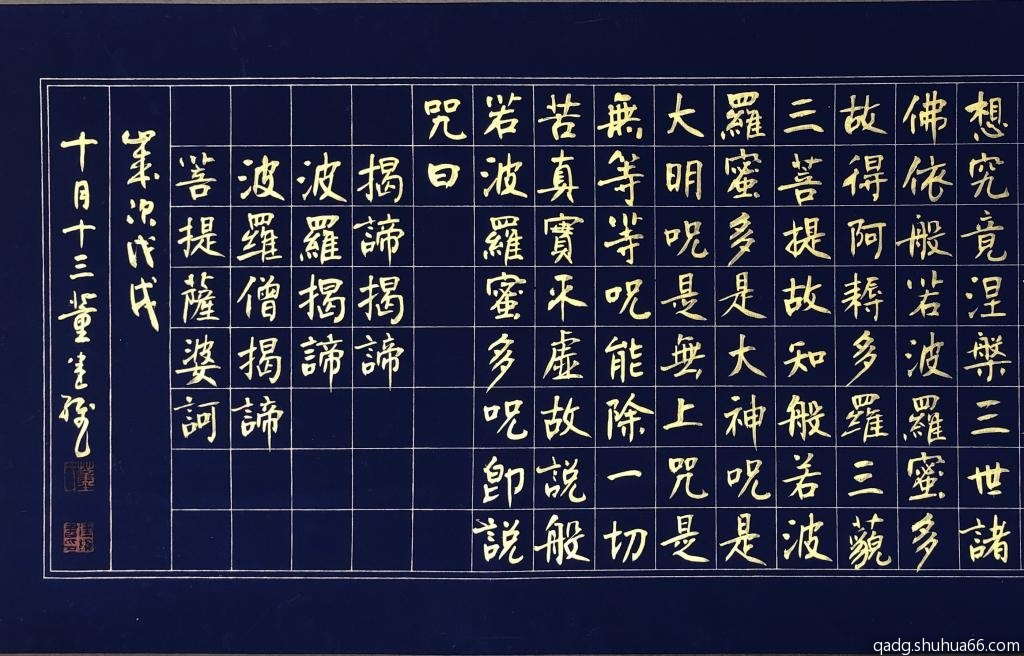 想究竟涅槃三世諸
佛依般若波羅蜜多
故得阿耨多羅三藐
三菩提故知般若波
羅蜜多是大神呪是
大明呪是無上咒是
無等等呪能除一切
苦真實不虛故説般
若波羅蜜多呪即説
咒曰
揭諦揭諦
波羅揭諦
波羅僧揭諦
菩提薩婆訶
歲次戊戌
十月十三董
qadg.shuhua66.com